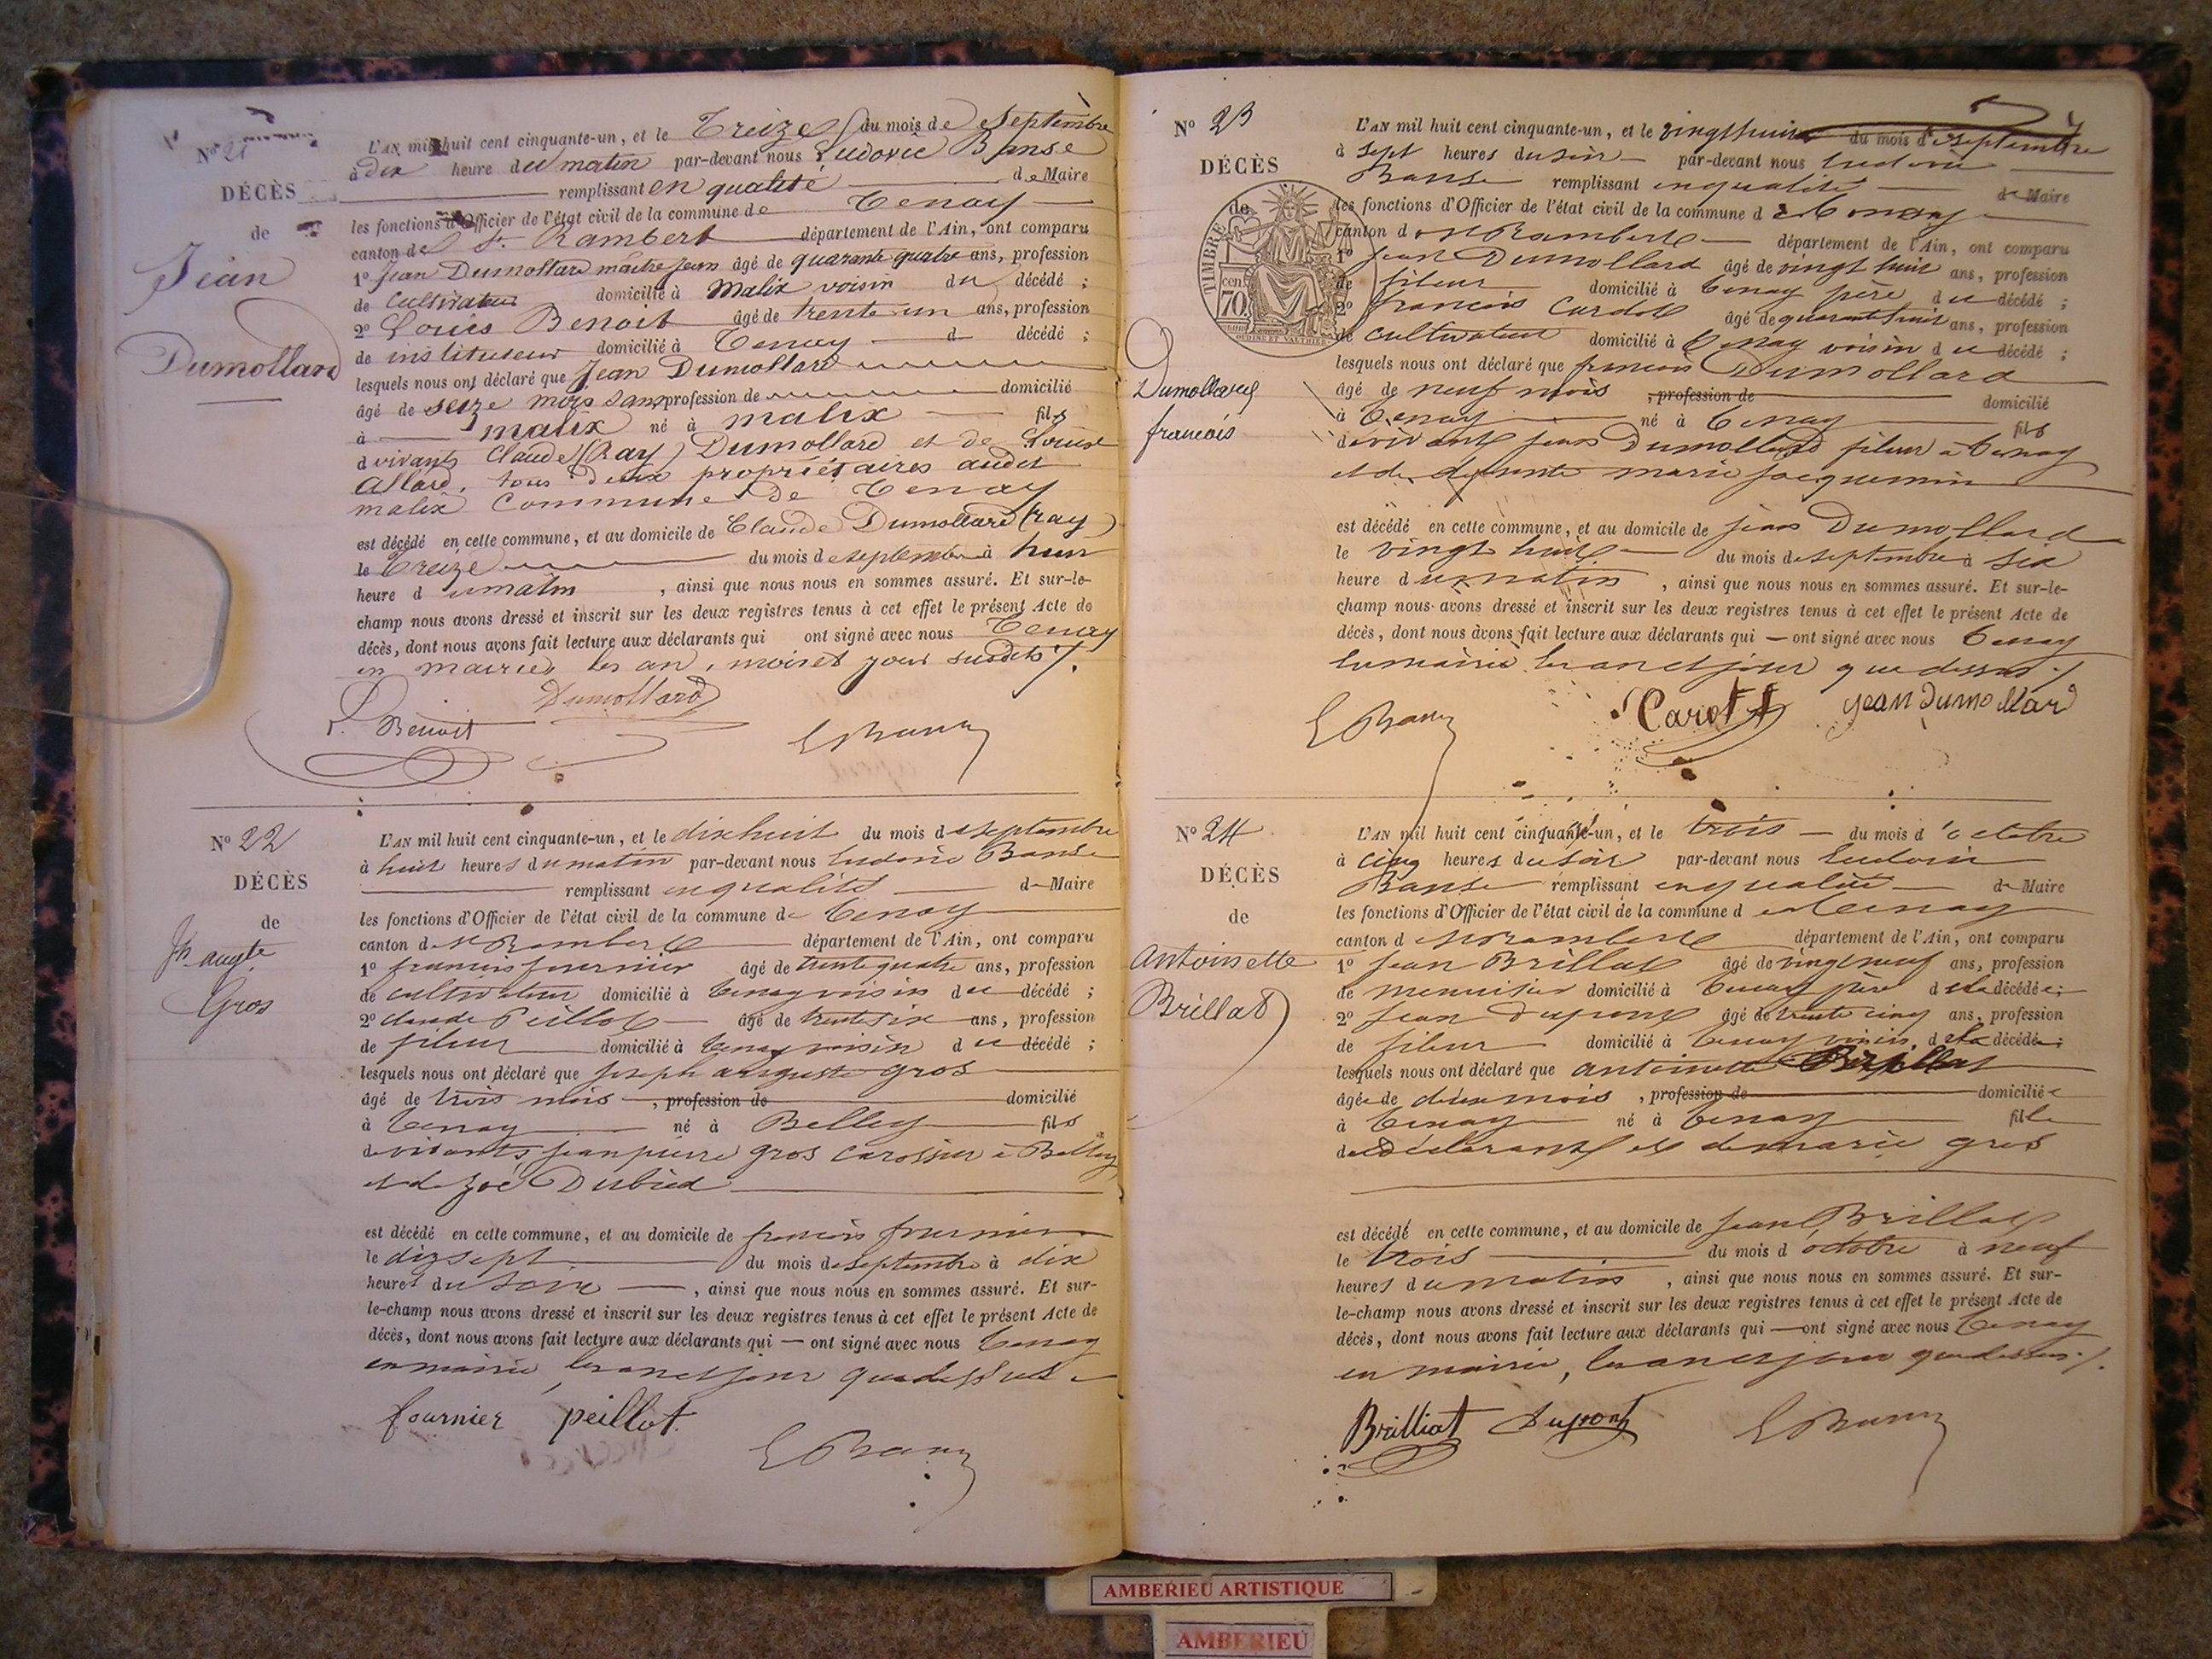 Nº 21
DÉCÈS
de
Jean
Dumollard
L'AN mil huit cent cinquante-un, et le Treize du mois de Septembre
à dix heure du matin par-devant nous Ludovic Banse
remplissant en qualité de Maire
les fonctions d'Officier de l'état civil de la commune de Tenay
canton de St Rambert département de l'Ain, ont comparu
1º Jean Dumollard maitre jean âgé de quarante quatre ans, profession
de Cultivateur domicilié à Malix voisin du décédé ;
2º Louis Benoit âgé de trente un ans, profession
de instituteur domicilié à Tenay d décédé ;
lesquels nous ont déclaré que Jean Dumollard
âgé de seize mois sans profession de domicilié
à malix né à malix fils
de vivants Claude (Ray) Dumollard et de Louise
Allard, tous deux propriétaires audit
malix Commune de Tenay
est décédé en cette commune, et au domicile de Claude Dumollard (ray)
le Treize du mois de septembre à huit
heure du matin , ainsi que nous nous en sommes assuré. Et sur-le-
champ nous avons dressé et inscrit sur les deux registres tenus à cet effet le présent Acte de
décès, dont nous avons fait lecture aux déclarants qui ont signé avec nous Tenay
en mairie les an, mois et jour susdits ./.
Dumollard
L. Benoit
L Banse
Nº 22
DÉCÈS
de
Jh augte
Gros
L'AN mil huit cent cinquante-un, et le dix huit du mois de septembre
à huit heures du matin par-devant nous Ludovic Banse
remplissant en qualité de Maire
les fonctions d'Officier de l'état civil de la commune de Tenay
canton de St Rambert département de l'Ain, ont comparu
1º francois fournier âgé de trente quatre ans, profession
de cultivateur domicilié à Tenay voisin du décédé ;
2º claude Peillot âgé de trente six ans, profession
de fileur domicilié à Tenay voisin du décédé ;
lesquels nous ont déclaré que joseph auguste gros
âgé de trois mois , profession de domicilié
à Tenay né à Belley fils
de vivants jean pierre gros carossier à Belley
et de Zoé Dubied
est décédé en cette commune, et au domicile de francois fournier
le dix sept du mois de septembre à dix
heures du soir , ainsi que nous nous en sommes assuré. Et sur-
le-champ nous avons dressé et inscrit sur les deux registres tenus à cet effet le présent Acte de
décès, dont nous avons fait lecture aux déclarants qui — ont signé avec nous Tenay
en mairie, les an et jour que dessus
fournier peillot
L Banse
Nº 23
DÉCÈS
de
TIMBRE
70 cent
OUDINÉ ET VAUTHIER
Dumollard
francois
L'AN mil huit cent cinquante-un, et le vingt huit du mois de septembre
à sept heures du soir par-devant nous Ludovic
Banse remplissant en qualité de Maire
les fonctions d'Officier de l'état civil de la commune de Tenay
canton de St Rambert département de l'Ain, ont comparu
1º Jean Dumollard âgé de vingt huit ans, profession
de fileur domicilié à Tenay père du décédé ;
2º francois Cardot âgé de quarante huit ans, profession
de cultivateur domicilié à Tenay voisin du décédé ;
lesquels nous ont déclaré que francois Dumollard
âgé de neuf mois , profession de domicilié
à Tenay né à Tenay fils
de vivant jean Dumollard fileur à Tenay
et de defunte marie jacquemin
est décédé en cette commune, et au domicile de jean Dumollard
le vingt huit du mois de septembre à six
heure du matin , ainsi que nous nous en sommes assuré. Et sur-le-
champ nous avons dressé et inscrit sur les deux registres tenus à cet effet le présent Acte de
décès, dont nous avons fait lecture aux déclarants qui — ont signé avec nous Tenay
en mairie les an et jour que dessus ./.
L Banse
Carot
jean dumollard
Nº 24
DÉCÈS
de
Antoinette
Brillat
L'AN mil huit cent cinquante-un, et le trois du mois d'octobre
à cinq heures du soir par-devant nous Ludovic
Banse remplissant en qualité de Maire
les fonctions d'Officier de l'état civil de la commune de Tenay
canton de St Rambert département de l'Ain, ont comparu
1º jean Brillat âgé de vingt neuf ans, profession
de menuisier domicilié à Tenay père de la décédée ;
2º jean dupont âgé de trente cinq ans, profession
de fileur domicilié à Tenay voisin de la décédée ;
lesquels nous ont déclaré que antoinette Brillat
âgée de deux mois , profession de domiciliée
à Tenay né à Tenay fille
dudéclarant et de marie gros
est décédé en cette commune, et au domicile de jean Brillat
le trois du mois d'octobre à neuf
heures du matin , ainsi que nous nous en sommes assuré. Et sur-
le-champ nous avons dressé et inscrit sur les deux registres tenus à cet effet le présent Acte de
décès, dont nous avons fait lecture aux déclarants qui — ont signé avec nous Tenay
en mairie, les an et jour que dessus ./.
Brilliat Dupont L Banse
AMBERIEU ARTISTIQUE
AMBERIEU